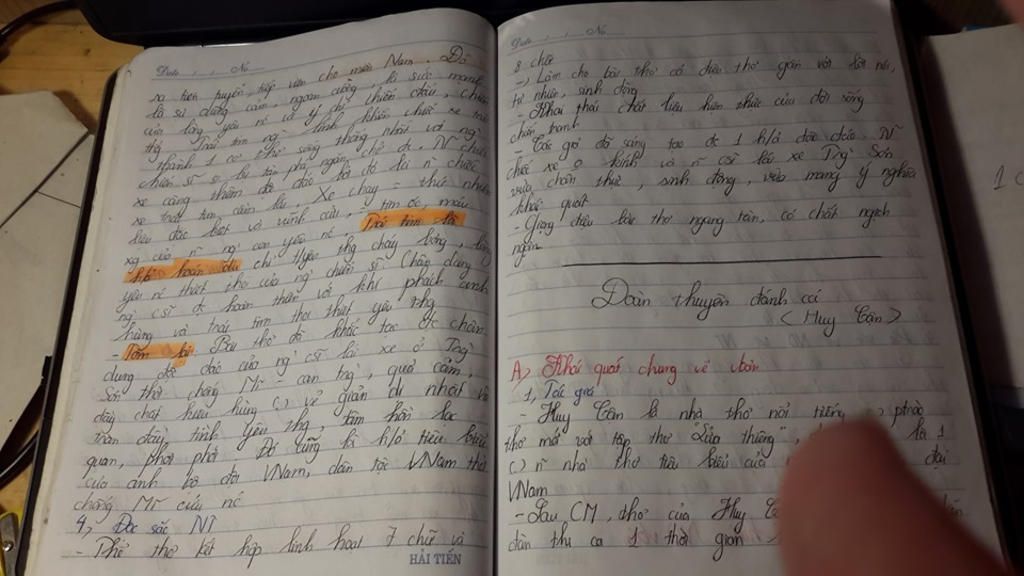 Date . . . No
ra tiền tuyến, tiếp viện cho miền Nam. Đó
là sự dũng cảm, ngoan cường, là sức mạnh
của lòng yêu nc và ý chí chiến đấu, chiến
thg. Trái tim ng lính khiến chiếc xe trở
thành 1 cơ thể sống thống nhất với ng
chiến sĩ ko gì tàn phá, ngăn chở đc. N chiếc
xe càng thêm độ đáo bởi đó là n chiếc
xe trái tim cầm lái. Xe chạy = thứ nhiên
liệu đặc biệt và vĩnh cửu, tim óc, máu
xg của n ng con yêu nc. Trái tim là
h/ả hoán dụ chỉ tyêu thg cháy bỏng, lòng
yêu nc thiết tha của ng chiến sĩ. Chân dung
ng csĩ đc hoàn thiện với khí phách anh
hùng và trái tim tha thiết yêu thg
- Tóm lại: Bài thơ đã khắc tạc đc chân
dung độ đáo của ng csĩ lái xe ở Trg
Sơn thời chống Mĩ - can trg, quả cảm,
đầy chất hiệu hùng () vẻ giản dị nhất và
tràn đầy tình yêu thg, tâm hồn lạc
quan, phơi phới. Đó cũng là h/ả tiêu biểu
của anh bộ đội VNam, dân tộc VNam thời
chống Mĩ cứu nc
4, Đặc sắc NT
- Thể thơ kết hợp linh hoạt 7 chữ và
HẢI TIẾN
Date . . . No
8 chữ
=> Làm cho bài thơ có điệu thơ gần với lời nói,
tự nhiên, sinh động
- Khai thác chất liệu hiện thực của đời sống
chiến tranh
- Tác giả đã sáng tạo đc 1 h/ả độc đáo: N
chiếc xe ko kính và n csĩ lái xe Trg Sơn
vừa chân thực, sinh động, vừa mang ý nghĩa
khái quát
- Giọng điệu bài thơ ngang tàn, có chất nghịch
ngợm
Đoàn thuyền đánh cá
< Huy Cận >
A, Khái quát chung về vbản
1, Tác giả
- Huy Cận là nhà thơ nổi tiếng () ptrào
thơ mới với tập thơ "Lửa thiêng", là 1
() n nhà thơ tiêu biểu của đại
VNam
- Sau CM, thơ của Huy
đàn thi ca 1 thời gian
1